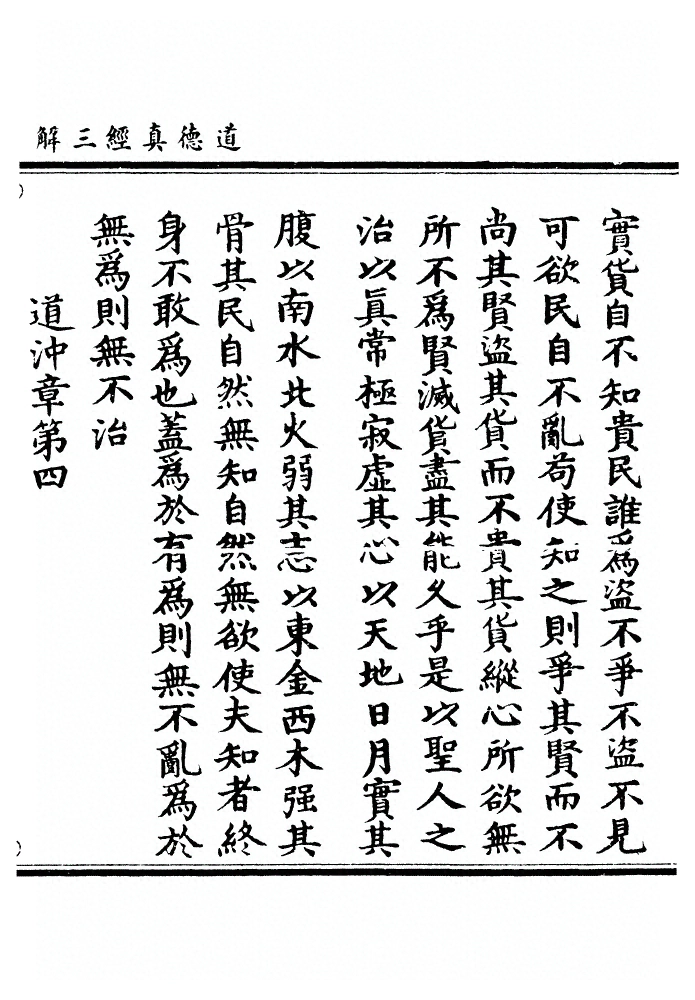 道德真經三解
實貨自不知貴民誰爲盜不爭不盜不見
可欲民自不亂苟使知之則爭其賢而不
尚其賢盜其貨而不貴其貨縱心所欲無
所不爲賢滅貨盡其能久乎是以聖人之
治以眞常極寂虛其心以天地日月實其
腹以南水北火弱其志以東金西木强其
骨其民自然無知自然無欲使夫知者終
身不敢爲也蓋爲於有爲則無不亂爲於
無爲則無不治
道沖章第四